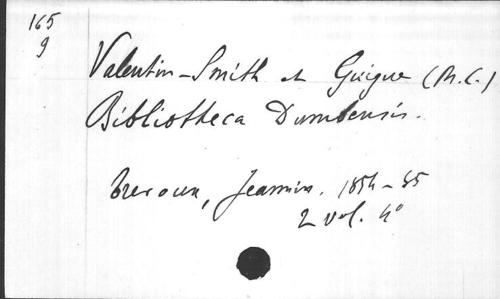 165
9
Valentin-Smith et Guigue (M. C.)
Bibliotheca Dumbensis.
Trevoux, Jeannin. 1854-85
2 vol. 4°